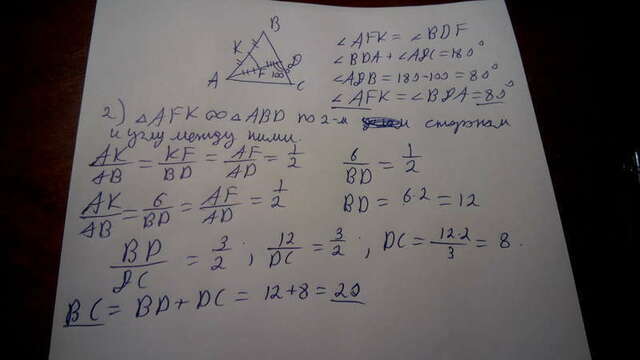 B
K
D
A
F
100
C
∠AFK = ∠BDF
∠BDA + ∠ADC = 180°
∠ADB = 180-100 = 80°
∠AFK = ∠BDA = 80°
2) △AFK ∞ △ABD по 2-м сторонам
и углу между ними.
AK/AB = KF/BD = AF/AD = 1/2
6/BD = 1/2
AK/AB = 6/BD = AF/AD = 1/2
BD = 6·2 = 12
BD/DC = 3/2 ; 12/DC = 3/2 ; DC = 12·2/3 = 8.
BC = BD + DC = 12+8 = 20